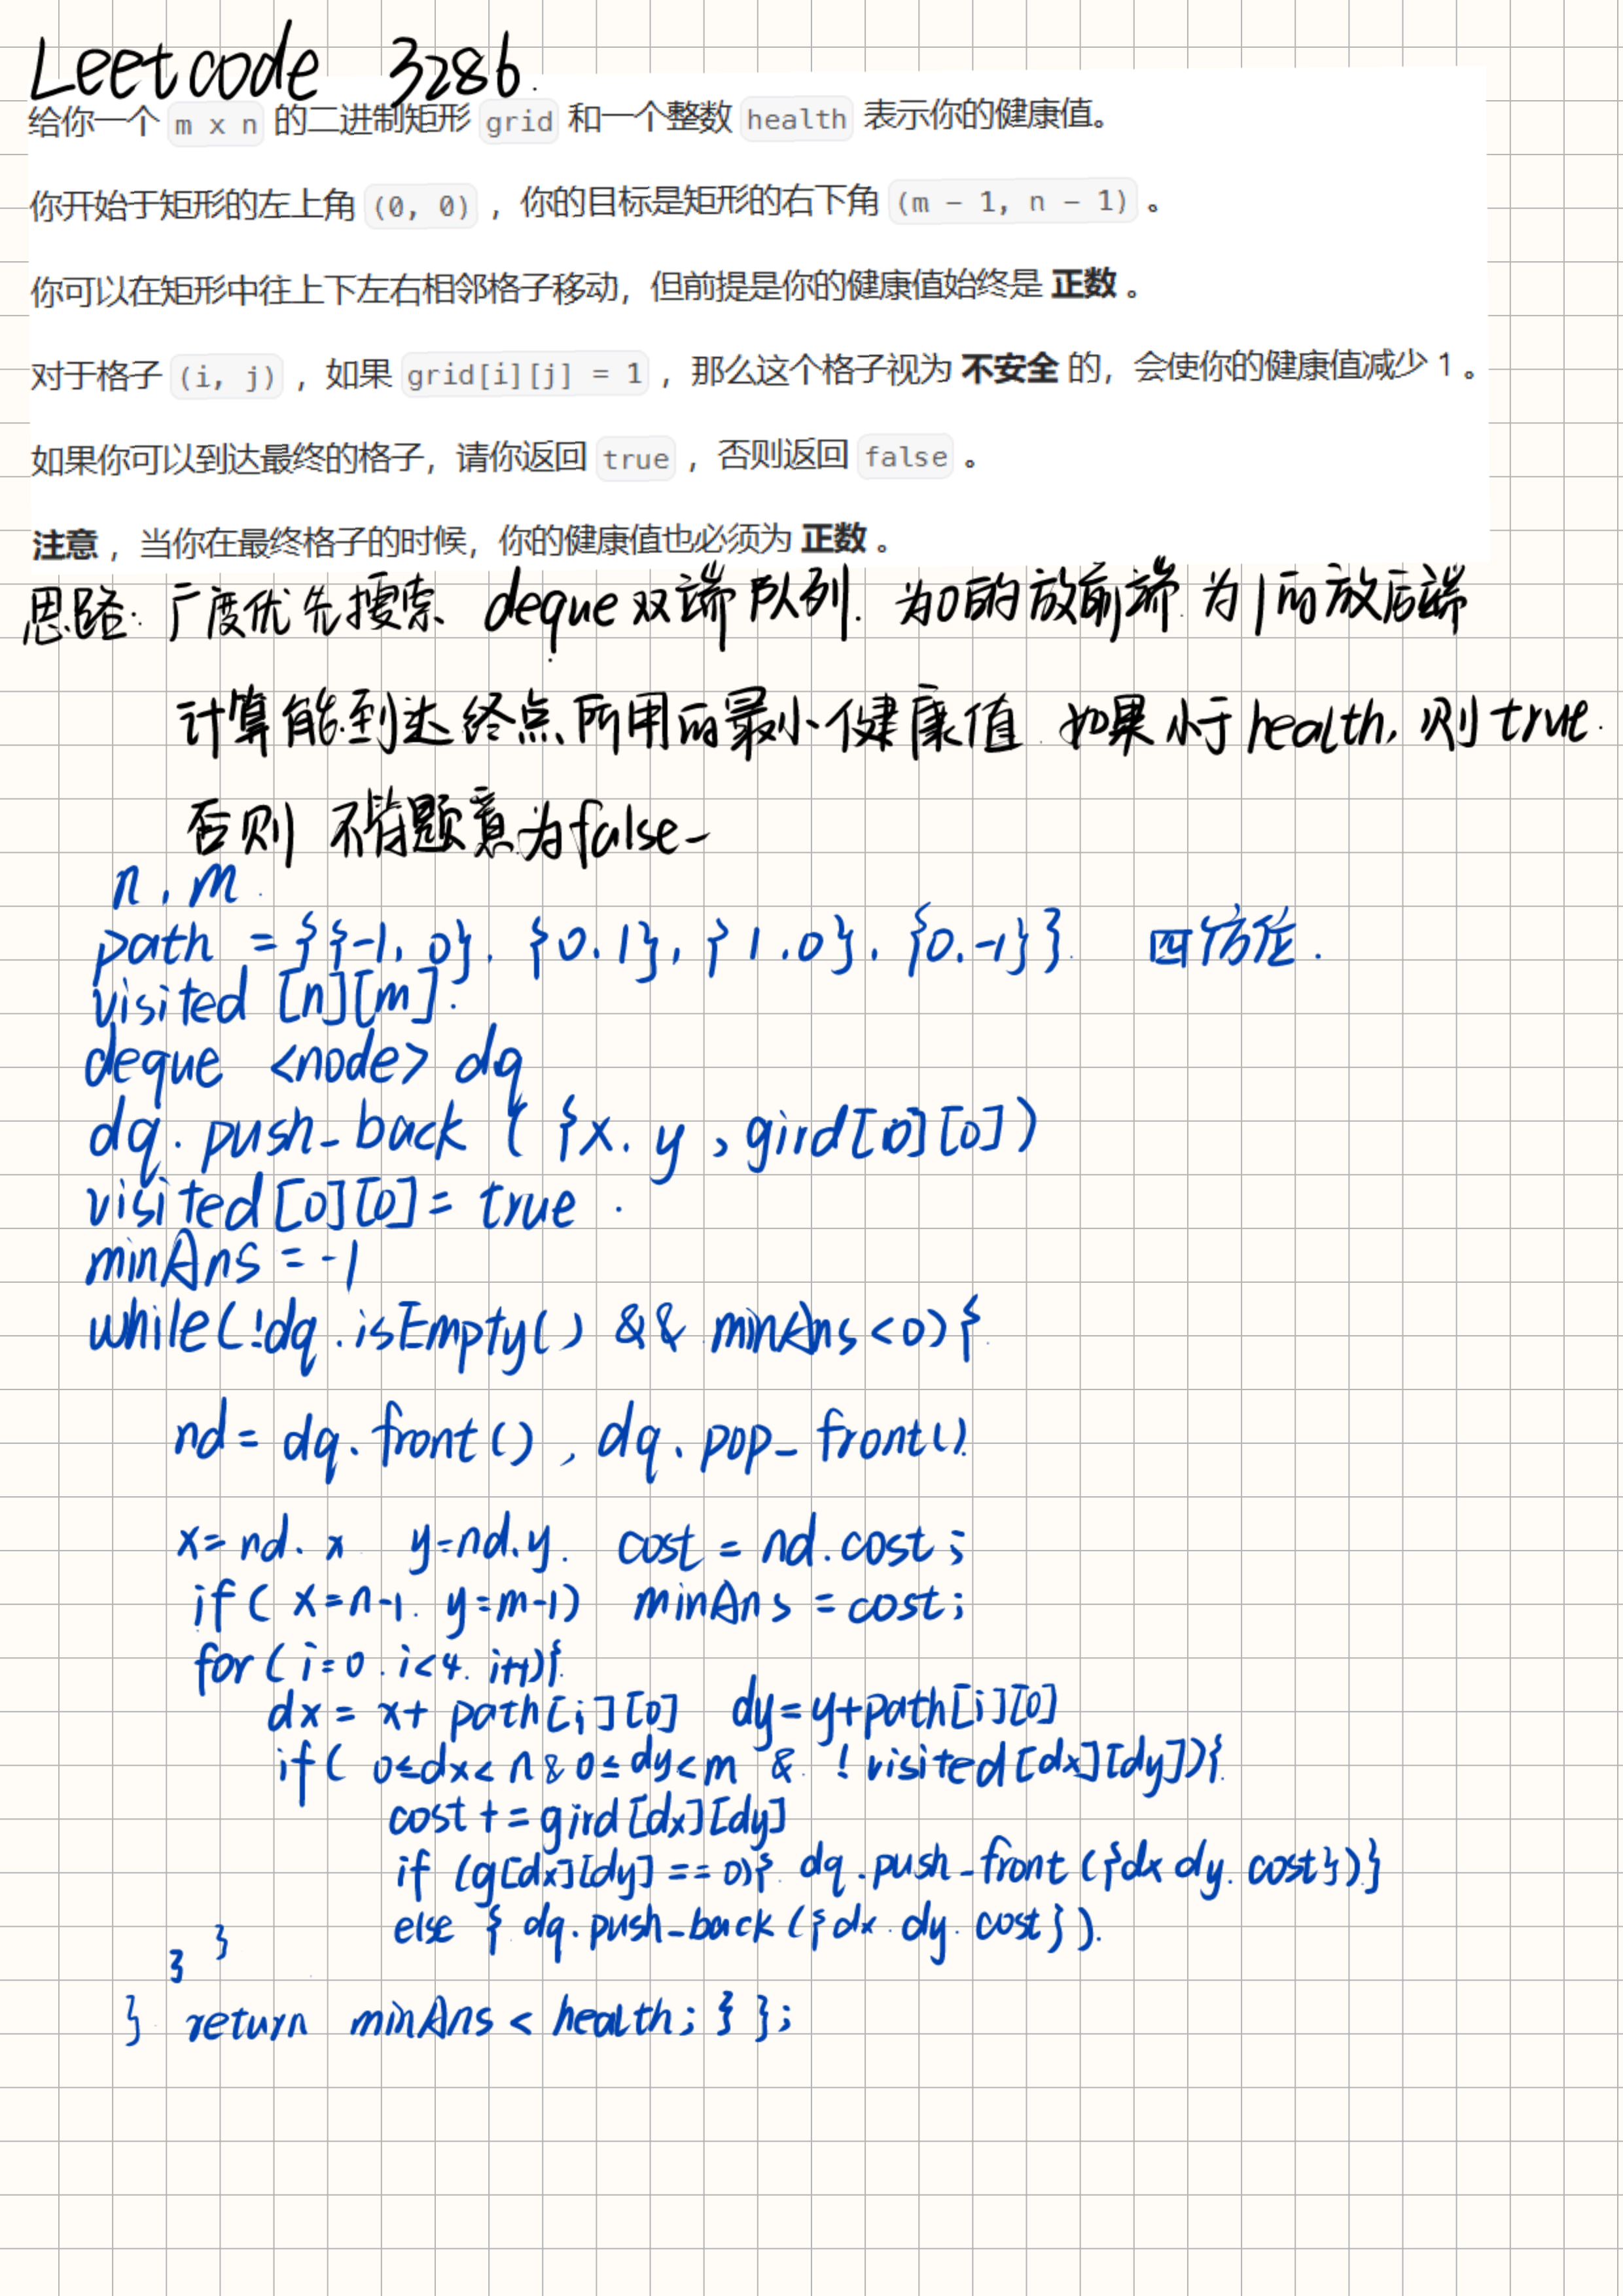 Leetcode 3286.
给你一个 m x n 的二进制矩形 grid 和一个整数 health 表示你的健康值。
你开始于矩形的左上角 (0, 0) ，你的目标是矩形的右下角 (m - 1, n - 1) 。
你可以在矩形中往上下左右相邻格子移动，但前提是你的健康值始终是 正数 。
对于格子 (i, j) ，如果 grid[i][j] = 1 ，那么这个格子视为 不安全 的，会使你的健康值减少 1 。
如果你可以到达最终的格子，请你返回 true ，否则返回 false 。
注意 ，当你在最终格子的时候，你的健康值也必须为 正数 。
思路: 广度优先搜索、deque双端队列. 为0的放前端 为1的放后端
计算能到达终点所用的最小健康值 如果小于health, 则true.
否则 不符题意为false-
n, m.
path = {{-1, 0}, {0.1}, {1.0}, {0.-1}}. 四方位.
visited [n][m].
deque <node> dq
dq.push_back ( {x. y , gird[0][0])
visited[0][0] = true .
minAns = -1
while(!dq.isEmpty() && minAns < 0){
nd = dq.front() , dq.pop_front()
x= nd. x y=nd.y. cost = nd.cost ;
if( x=n-1. y=m-1) minAns = cost;
for( i=0 . i<4. i++){
dx = x+ path[i][0] dy=y+path[i][0]
if( 0≤dx< n & 0≤dy<m & ! visited[dx][dy]){
cost += gird[dx][dy]
if (g[dx][dy] == 0){ dq.push_front({dx dy. cost})}
else { dq.push_back({dx. dy. cost}).
}
}
} return minAns < health; } };